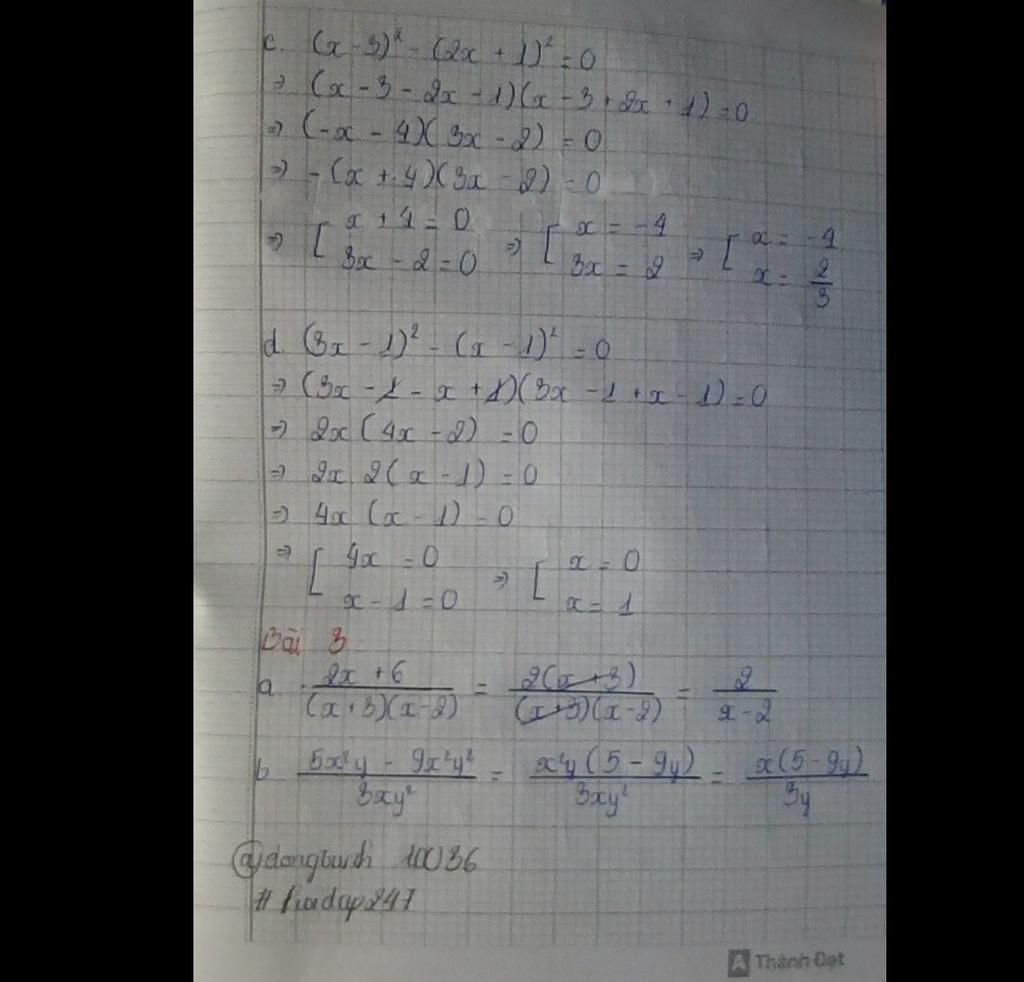 c. (x - 3)² - (2x + 1)² = 0
⇒ (x - 3 - 2x - 1)(x - 3 + 2x + 1) = 0
⇒ (-x - 4)(3x - 2) = 0
⇒ -(x + 4)(3x - 2) = 0
⇒ [ x + 4 = 0 ⇒ [ x = -4 ⇒ [ x = -4
3x - 2 = 0 3x = 2 x = 2/3
d. (3x - 1)² - (x - 1)² = 0
⇒ (3x - 1 - x + 1)(3x - 1 + x - 1) = 0
⇒ 2x (4x - 2) = 0
⇒ 2x 2(x - 1) = 0
⇒ 4x (x - 1) = 0
⇒ [ 4x = 0 ⇒ [ x = 0
x - 1 = 0 x = 1
Bài 3
a. (2x + 6)/((x + 3)(x - 2)) = (2(x + 3))/((x + 3)(x - 2)) = 2/(x - 2)
b (5x²y - 9x²y²)/(3xy²) = (x²y (5 - 9y))/(3xy²) = (x(5 - 9y))/(3y)
10036
A Thành Đạt